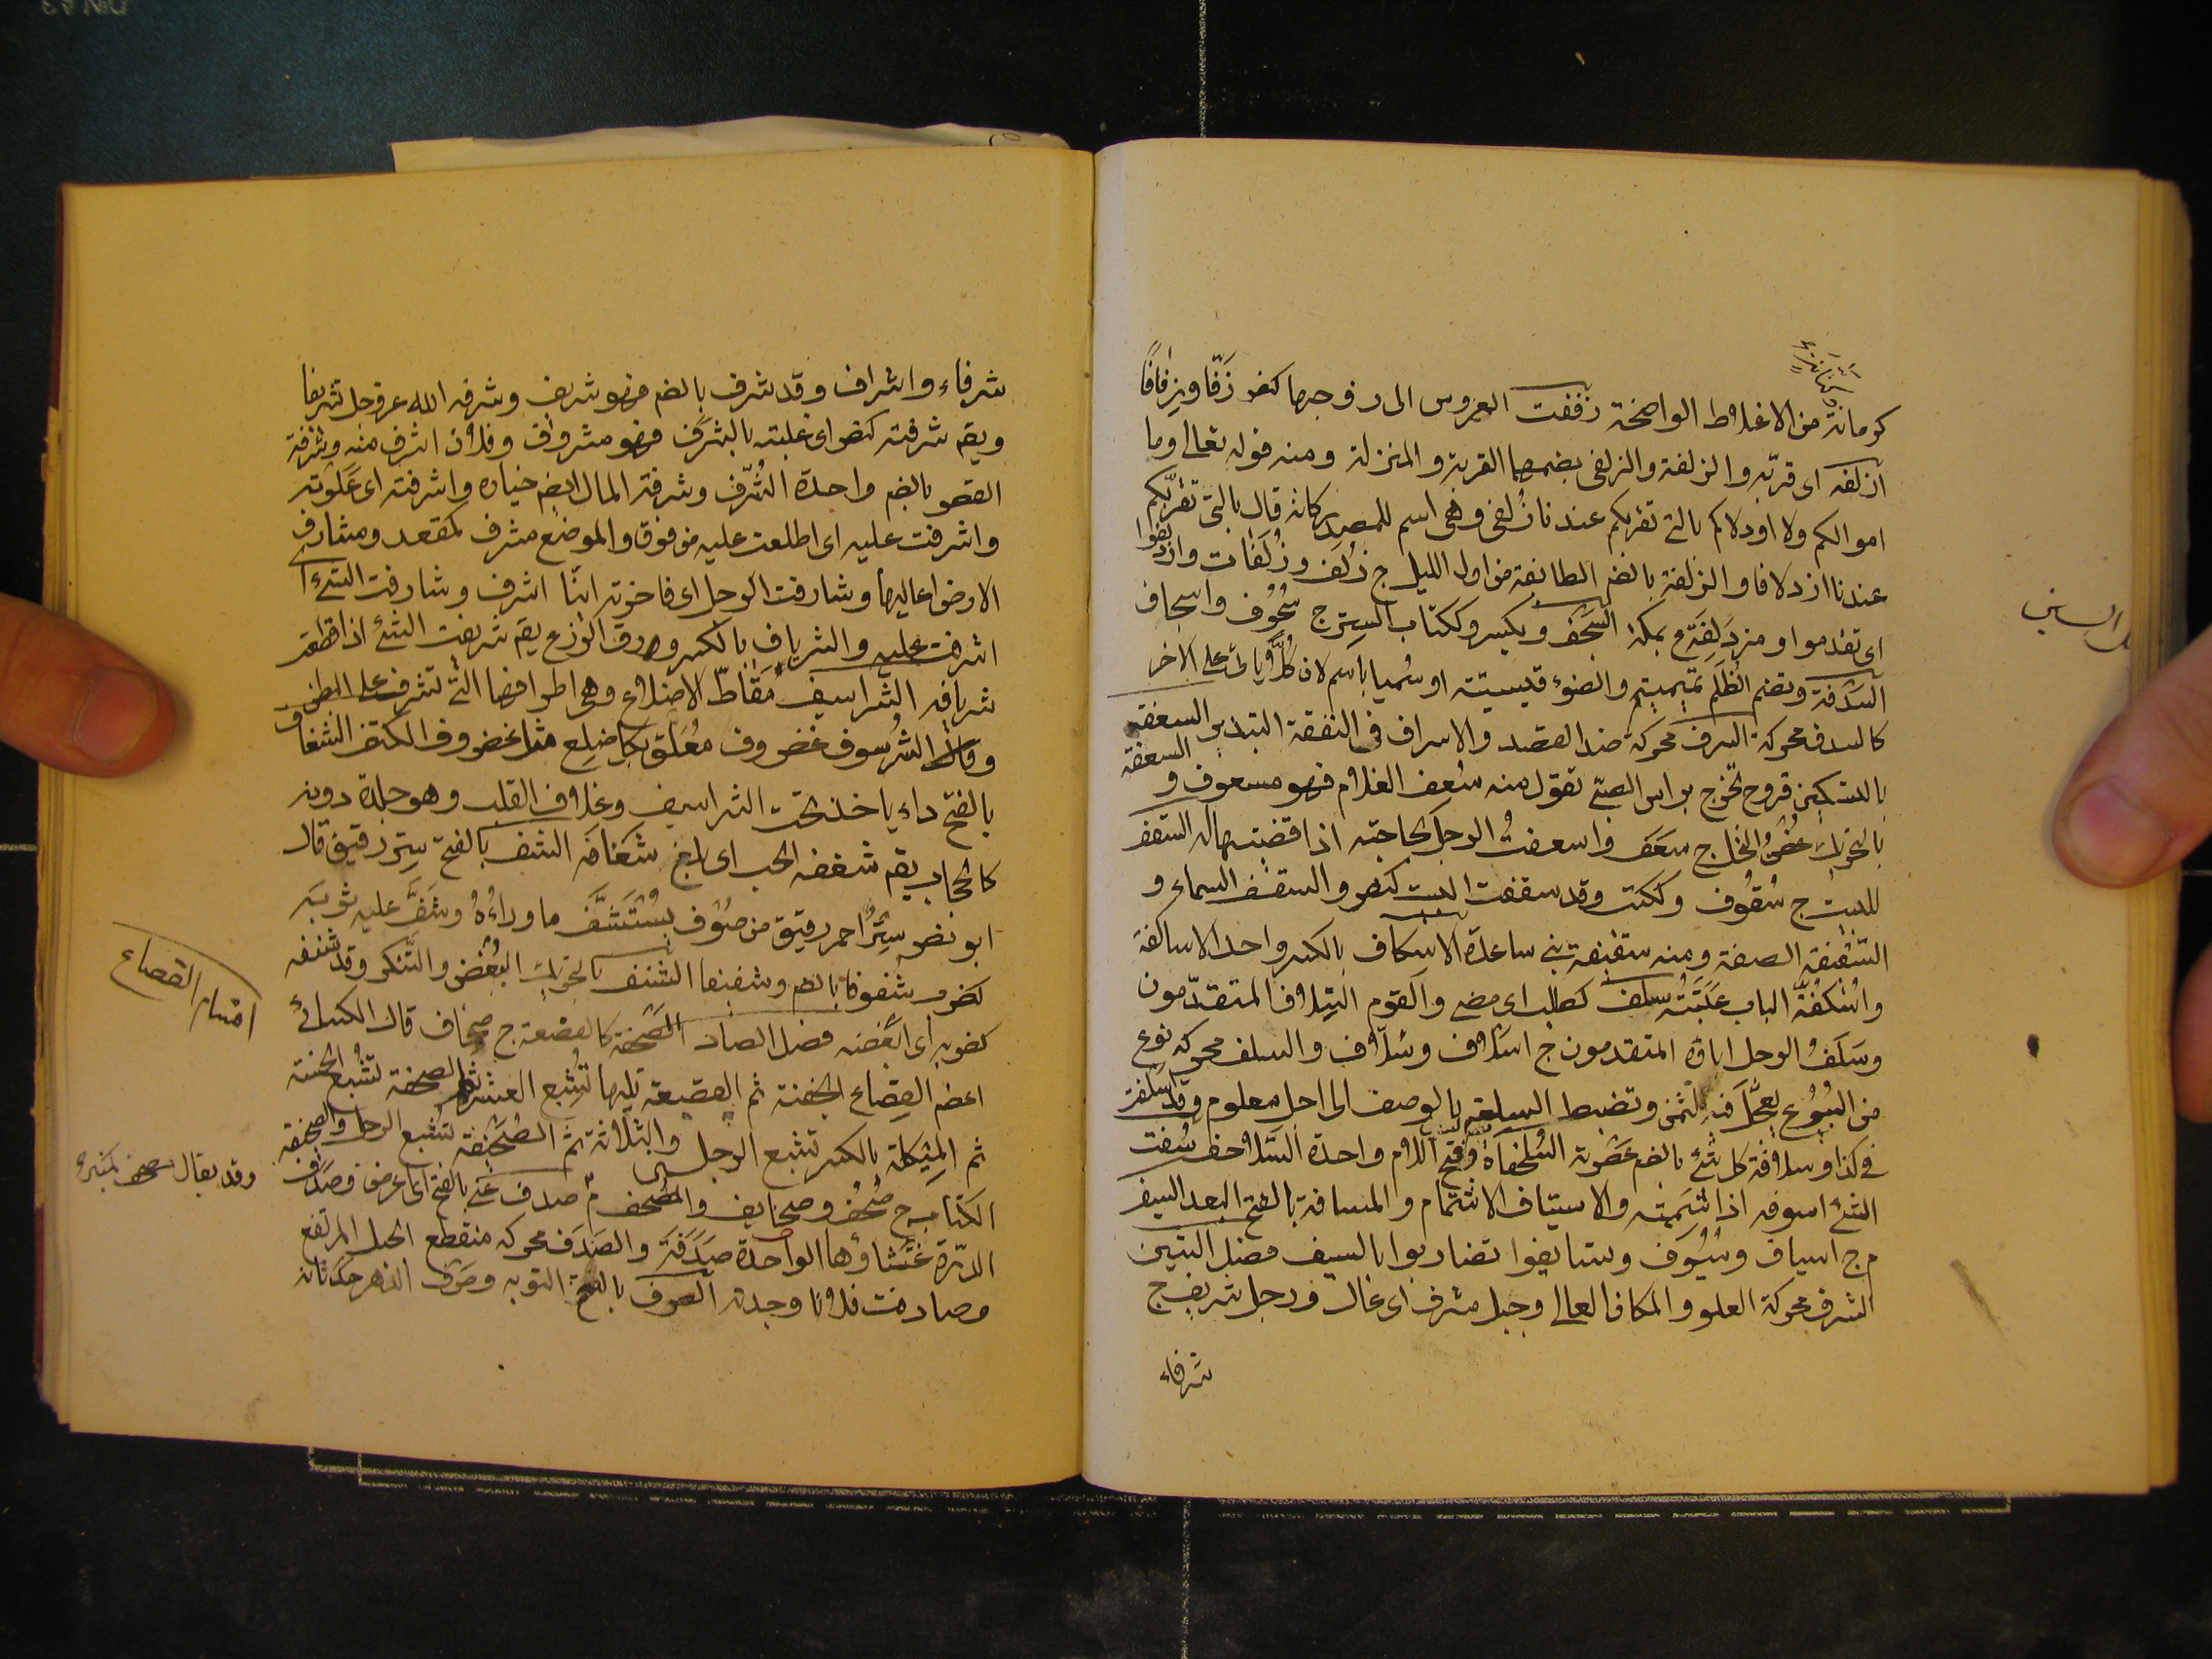 كرمانة من الاغلاط الواضحة زففت العروس الى زوجها كنصر زَفّا وزِفافًا
ازلفه اى قربّه والزلفة والزلفى بضمهما القربة والمنزلة ومنه قوله تعالى وما
اموالكم ولا اولادكم بالتى تقربكم عندنا زُلفى وهى اسم للمصدر كانه قال بالتى تقربّكم
عندنا ازدلافا والزلفة بالضم الطائفة من اول الليل ج زُلَف وزُلَفَات وازدلفوا
اى تقدموا ومزدَلِفَة ع بمكة السَّجَف ويكسر وككتاب السِتر ج سُجُوف واسجاف
السَدفة وتضم الظُلَم تميمية والضوء قيسية او سُميا باسم لان كُلًّا ياتى على الاخر
كالسدف محركة السرف محركة ضد القصد والاسراف فى النفقة التبذير السعفة
بالتسكين قروح تخرج براس الصبى تقول منه سُعِف الغلام فهو مسعوف والسعفة
بالتحريك غُصْنُ النخل ج سَعَف واسعفتُ الرجل بحاجته اذا قضيتها له السقف
للبيت ج سُقُوف وككتب وقد سقفت البيت كنصر والسقف السماء و
السَّقيفة الصفة ومنه سقيفة بنى ساعدة الاسكاف بالكسر واحد الاساكفة
واُسْكُفَّة الباب عَتَبَتُه سلف كطلب اى مضى والقوم السُلاف المتقدّمون
وسَلَفُ الرجل اباؤه المتقدمون ج اسلاف وسُلاّف والسلف محركة نوع
من البُيُوع يُعَجَّل فيه الثمن وتضبط السلعة بالوصف الى اجل معلوم وقد اسلفت
فى كذا وسلافة كل شئ بالضم عَصْرته السُلَحْفَاة وفتح اللام واحدة السَّلاحف سُفت
الشئ اسوفه اذا شَمِمته والاستياف الاشتمام والمسافة بالفتح البعد السيف
م ج اسياف وسُيُوف وتسايفوا تضاربوا بالسيف فصل الشين
الشرف محركة العلو والمكان العالى وجبل مشرف اى عال ورجل شريف ج
شرفاء
شرفاء واشراف وقد شرف بالضم فهو شريف وشرفه الله عز وجل تشريفا
ويقم شرفته كنصر اى غلبته بالشرف فهو مشروف وفلان اشرف منه وشرفة
القصر بالضم واحدة الشُرَّف وشرفة المال بالضم خياره واشرفته اى عَلَوته
واشرفت عليه اى اطلعت عليه من فوق والموضع مشرف كمقعد ومشارف
الارض اعاليها وشارفت الرجل اى فاخرته ايّنا اشرف وشارفت الشئ اى
اشرفت عليه والشرياف بالكسر ورق الزرع يقم شريفت الشئ اذا قطعت
شريافه الشراسيف مَقَاطّ الاضلاع وهى اطرافها التى تشرف على البطن
وقال الشُرسُوف غضروف مُعَلَّق بكل ضِلع مثل غضروف الكتف الشغاف
بالفتح داء ياخذ تحت الشراسيف وغلاف القلب وهو جلدة دونه
كالحجاب يقم شغفه الحب اى بلغ شغافه الشف بالفتح سِتر رقيق قال
ابو نصر سِتْرٌ احمر رقيق من صُوف يُسْتَشَفُّ ما وراءُه وشَفَّ عليه ثوبه
كضرب شفوفا بالضم وشفيفا الشنف بالتحريك البُغْض والتنكر وقد شنفه
كضربه اى ابغضه فصل الصاد الصَّحْفة كالقصعة ج صِحَاف قال الكسائى
اعظم القِصَاع الجفنة ثم القصعة تليها تُشبع العشرة ثم الصحفة تُشبع الخمسة
ثم المِئكلة بالكسر تشبع الرجلين والثلاثة ثم الصُحَيْفة تُشبع الرجل والصحيفة
الكتاب ج صُحُف وصحايف والمصحف م صدف عَنّى بالفتح اى اعرض وصَدَف
الدرّة غِشاؤها الواحدة صَدَفَة والصَدَف محركة منقطع الجبل المرتفع
وصادفت فلانا وجدته الصرف بالفتح التوبة وصرف الدهر حدثانه
اقسام القصاع
وقد يقال